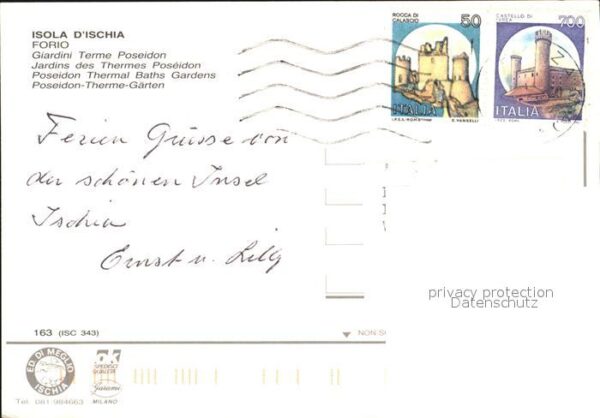 ISOLA D'ISCHIA
FORIO
Giardini Terme Poseidon
Jardins des Thermes Poséidon
Poseidon Thermal Baths Gardens
Poseidon-Therme-Gärten
ROCCA DI
CALASCIO
50
ITALIA
I.P.Z.S. ROMA
E. VANGELLI
CASTELLO DI
IVREA
700
ITALIA
Ferien Grüsse von
der schönen Insel
Ischia
Ernst u. Lilly
privacy protection
Datenschutz
163 (ISC 343)
NON S
ED. DI MEGLIO
ISCHIA
ok
Garami
MILANO
Tel. 081 984663